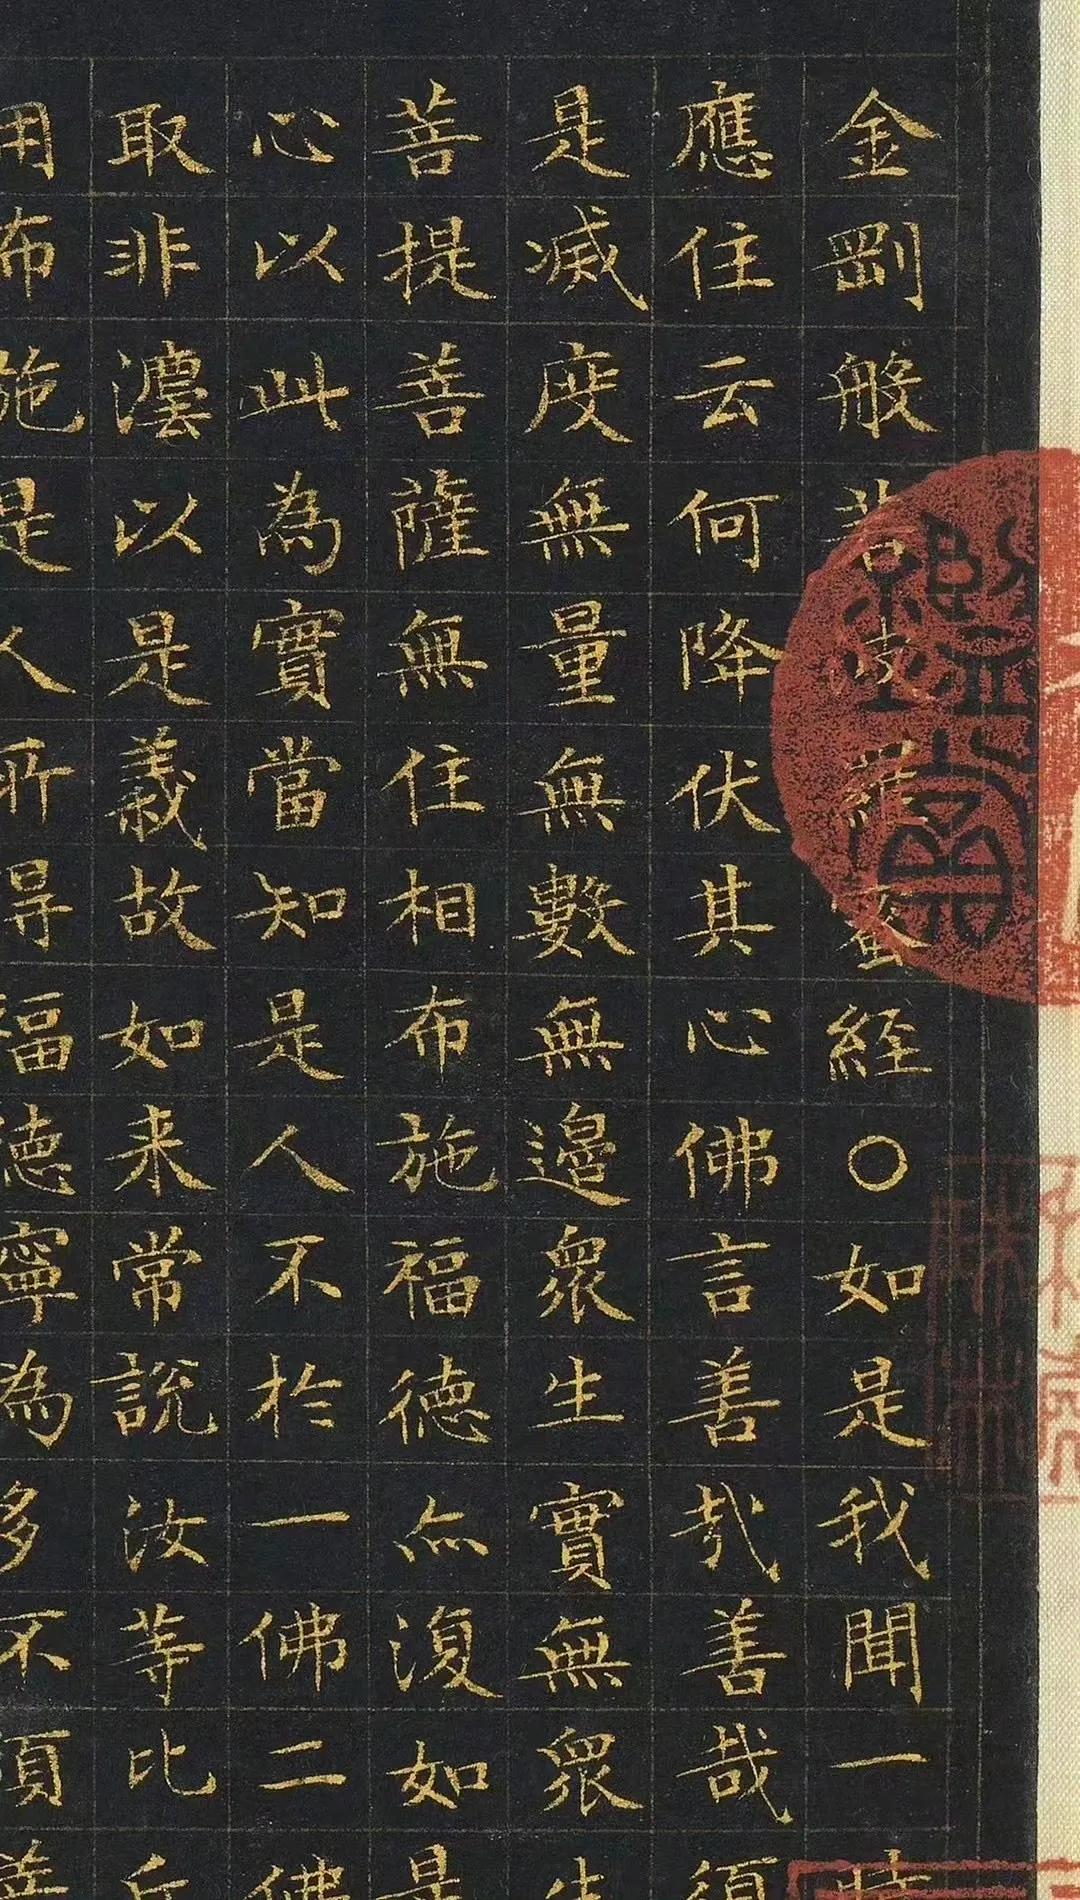 金剛般若波羅蜜經○如是我聞一時
應住云何降伏其心佛言善哉善哉須
是滅度無量無數無邊眾生實無眾生
菩提菩薩無住相布施福德亦復如是
心以此為實當知是人不於一佛二佛
取非灋以是義故如来常說汝等比丘
用布施是人所得福德寧為多不須菩